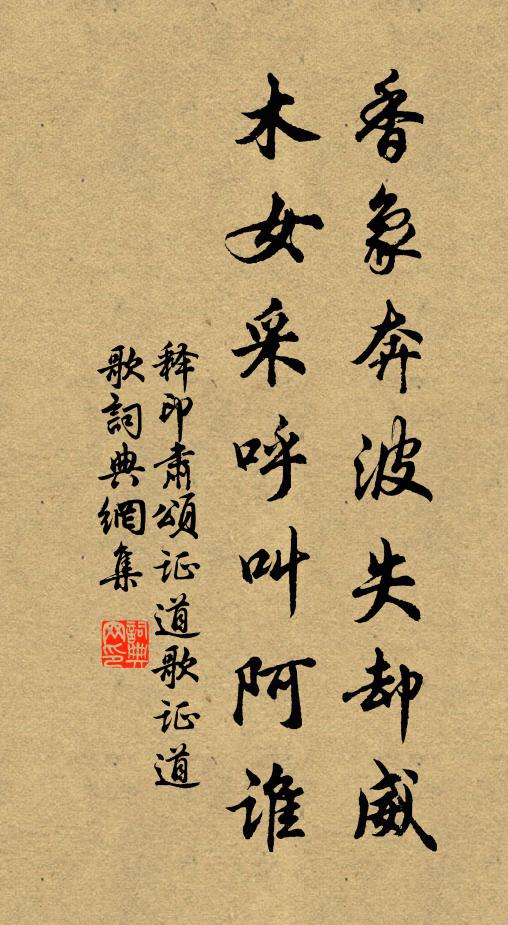 香象奔波失却威
木女采呼叫阿谁
释印肃颂证道歌证道
歌詞典網集
詞典網印